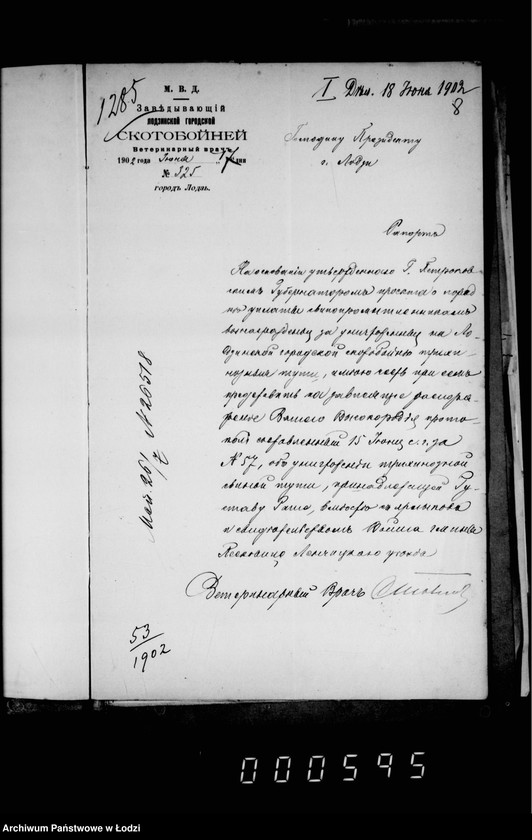 1285
М. В. Д.
Завѣдывающій
ЛОДЗИНСКОЙ ГОРОДСКОЙ
СКОТОБОЙНЕЙ
Ветеринарный врачъ
1902 года Іюня 17 дня
№ 325
городъ Лодзь.
I Дѣл. 18 Іюня 1902
8
Господину Президенту
г. Лодзи
Рапортъ
На основаніи утвержденного Г. Петроков-
скимъ Губернаторомъ проекта о поряд-
кѣ уплаты свинопромышленникамъ
вознагражденія за уничтоженныя на Ло-
дзинской городской скотобойнѣ трихи-
нозныя туши, имѣю честь при семъ
представить на зависящее распоря-
женіе Вашего Высокородія прото-
колъ составленный 15 Іюня с. г. за
№ 57, объ уничтоженіи трихинозной
свиной туши, принадлежащей Гу-
ставу, вмѣстѣ съ ярлыкомъ
и свидѣтельствомъ Войта гмины
Ленчицкаго уѣзда
Ветеринарный Врачъ
№ 20518
53
1902
000595
Archiwum Państwowe w Łodzi